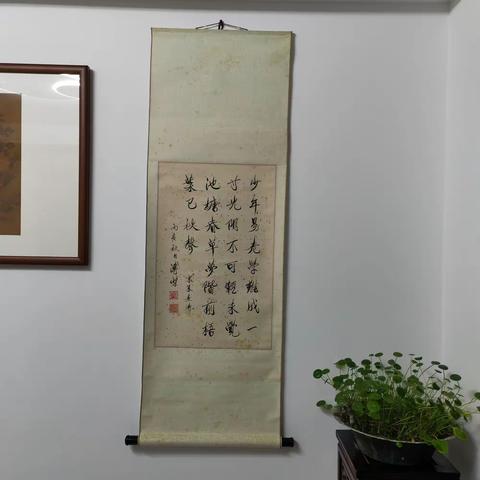 少年易老學難成一
寸光陰不可輕未覺
池塘春草夢階前梧
葉已秋聲
丙辰秋日溥傑